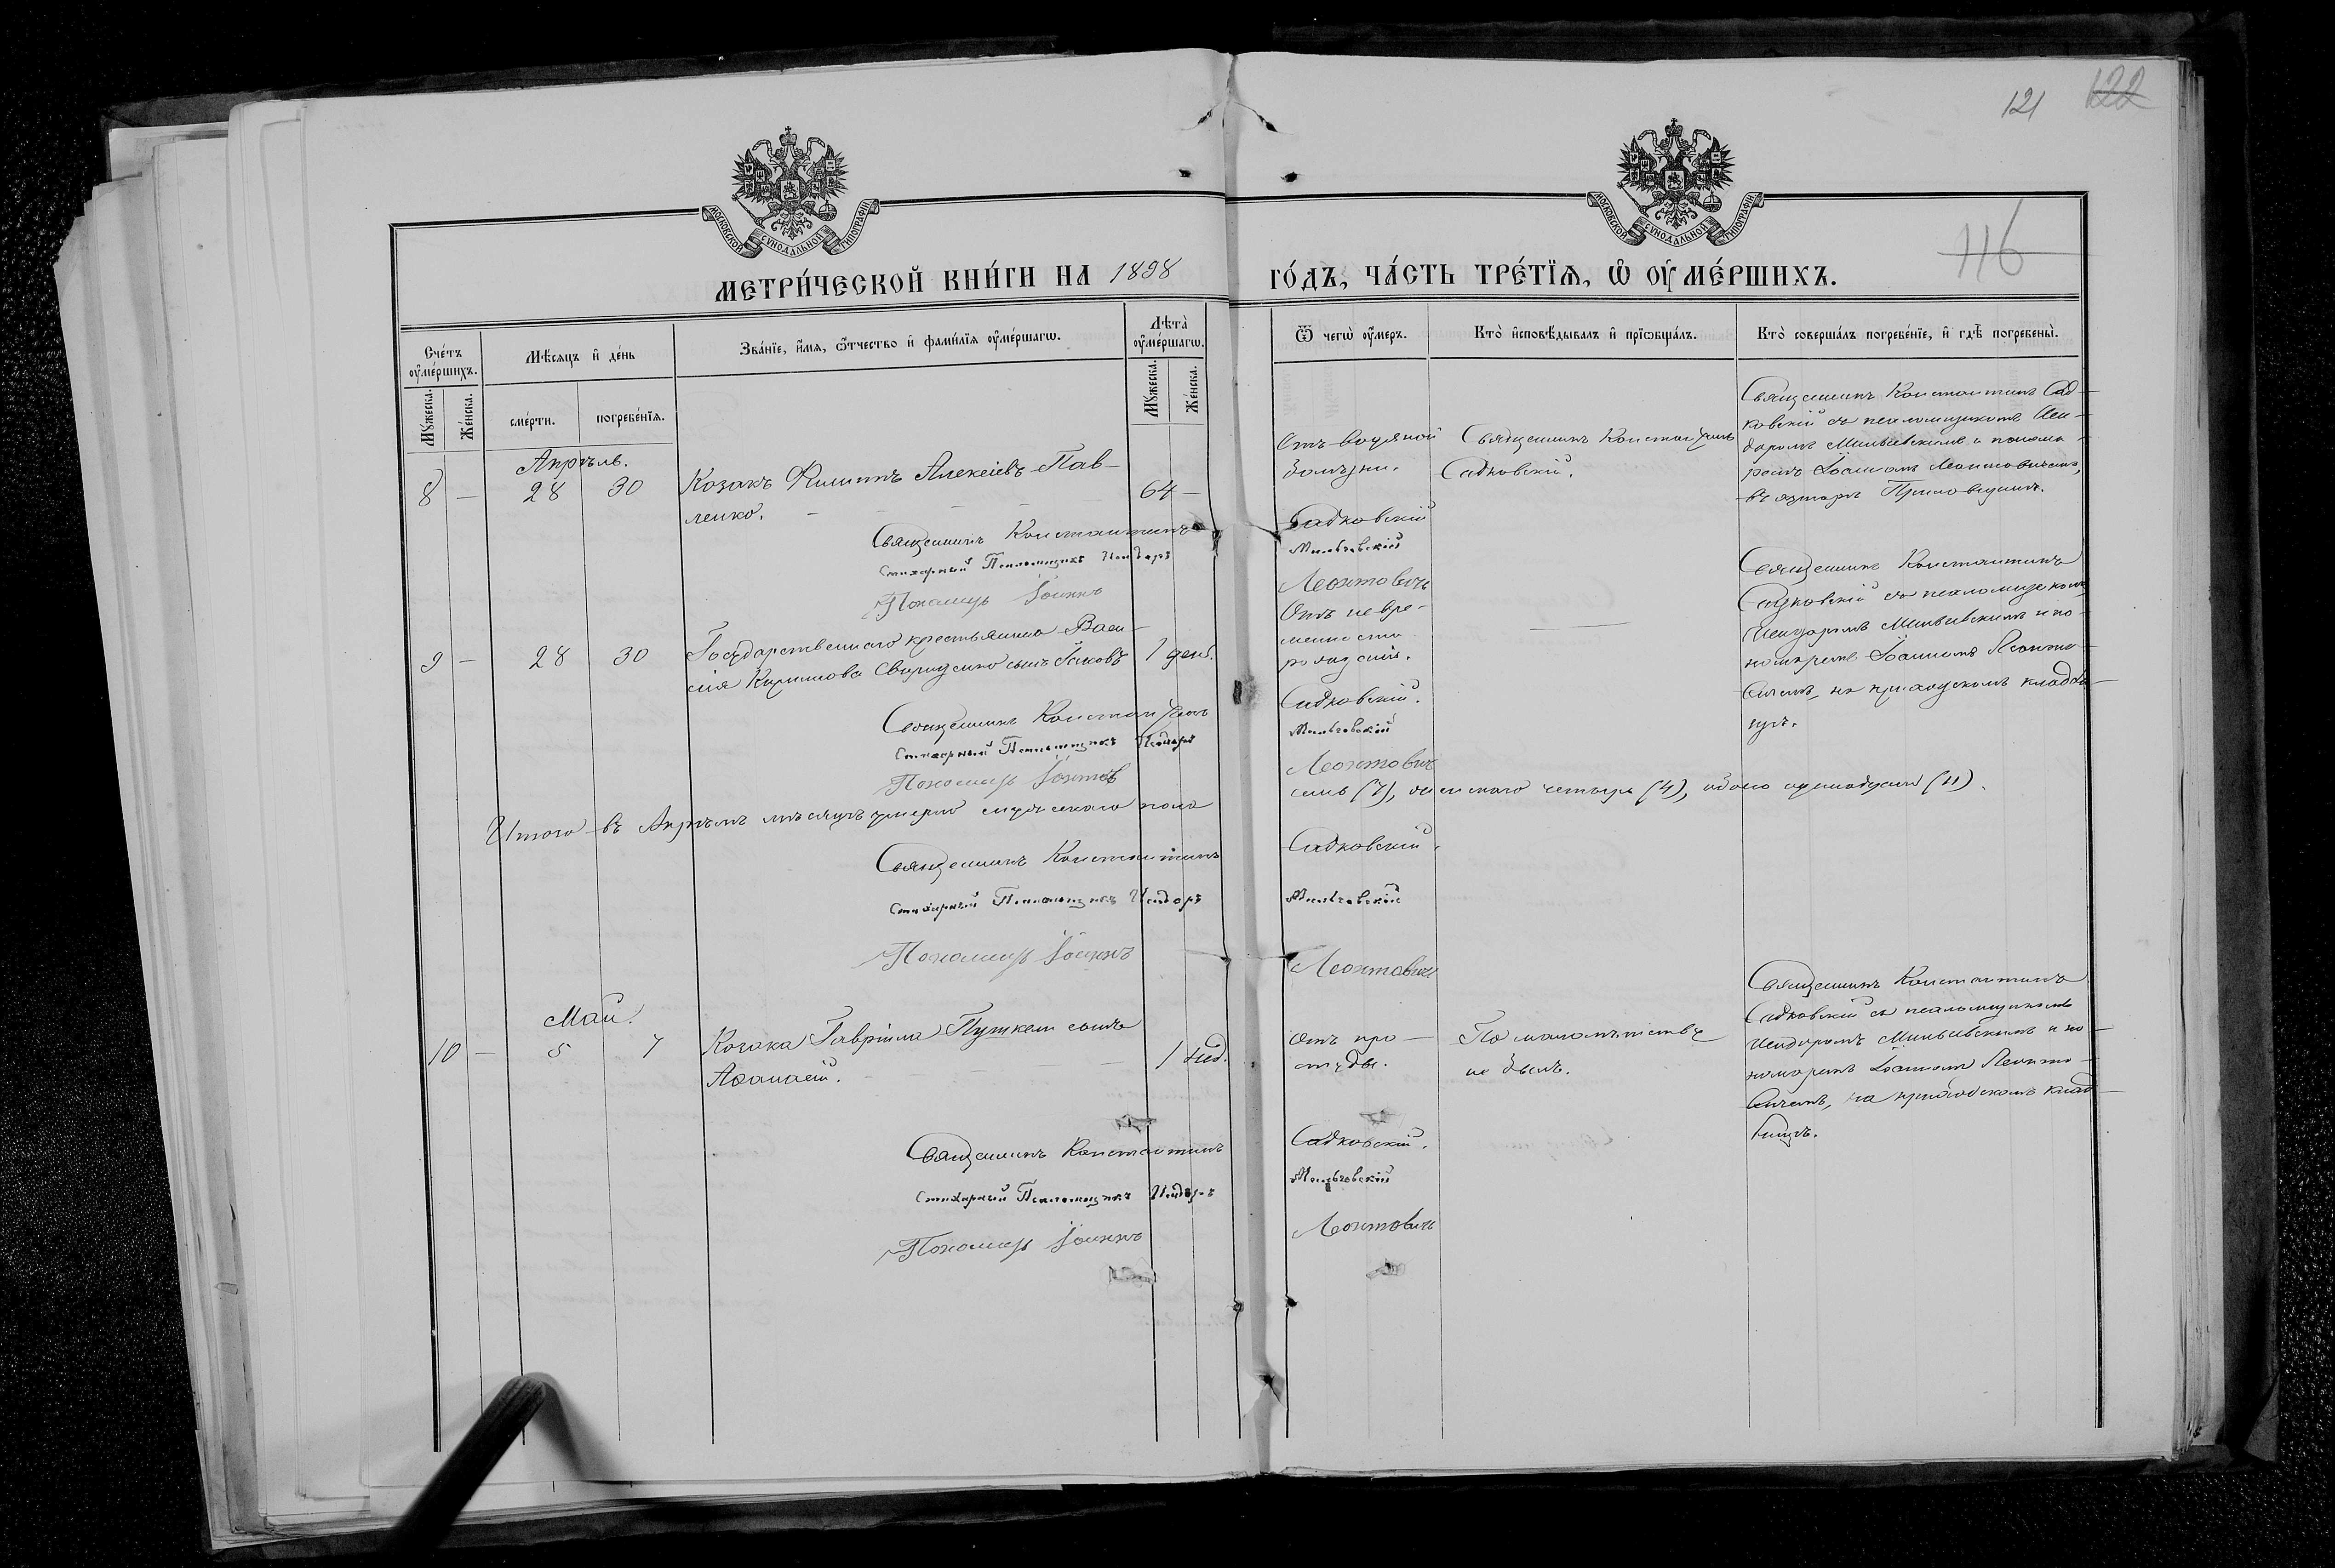 121 122
116
МОСКОВСКОЙ СѴНОДАЛЬНОЙ ТИПОГРАФІИ
МОСКОВСКОЙ СѴНОДАЛЬНОЙ ТИПОГРАФІИ
МЕТРИ́ЧЕСКОЙ КНИ́ГИ НА 1898 ГО́ДЪ, ЧА́СТЬ ТРЕ́ТЇѦ, Ѡ ОУМЕ́РШИХЪ.
Сче́тъ оуме́ршихъ.
Мꙋжеска.
Же́нска.
Мѣ́сѧцъ и де́нь
сме́рти.
погребе́нїѧ.
Зва́нїе, и҆́мѧ, ѻ҆́тчество и фами́лїѧ оуме́ршагѡ.
Лѣта̀ оуме́ршагѡ.
Мꙋжеска.
Же́нска.
Ѿ чегѡ̀ оу́меръ.
Кто̀ и҆сповѣ́дывалъ и прїѡбща́лъ.
Кто̀ соверша́лъ погребе́нїе, и гдѣ̀ погребены̀.
Апрѣль.
8 — 28 30
Козакъ Филиппъ Алексіевъ Пав-
ленко.
64 —
Отъ водяной
болѣзни.
Священникъ Константинъ
Садковскій.
Священникъ Константинъ Сад-
ковскій съ псаломщикомъ Иси-
доромъ Мильевскимъ и понома-
ремъ Іоанномъ Леонтовичемъ,
въ Приповщинѣ.
Священникъ Константинъ Садковскій
Стихарный Псаломщикъ Исидоръ Мильевскій
Пономарь Іоаннъ Леонтовичъ
9 — 28 30
Государственнаго крестьянина Васи-
лія Кириллова сынъ Іаковъ
1 день.
Отъ невре-
менности
рожденія.
Священникъ Константинъ
Садковскій съ псаломщикомъ
Исидоромъ Мильевскимъ и по-
номаремъ Іоанномъ Леонто-
вичемъ, на приходскомъ кладби-
щѣ.
Священникъ Константинъ Садковскій.
Стихарный Псаломщикъ Исидоръ Мильевскій
Пономарь Іоаннъ Леонтовичъ
Итого въ Апрѣлѣ мѣсяцѣ умерло мужескаго пола семь (7), женскаго четыре (4), обоего одинадцать (11).
Священникъ Константинъ Садковскій.
Стихарный Псаломщикъ Исидоръ Мильевскій
Пономарь Іоаннъ Леонтовичъ
Май.
10 — 5 7
Козака Гавріила Пушкаш сынъ
Аѳанасій.
1 нед.
Отъ про-
студы.
По малолѣтству
не былъ.
Священникъ Константинъ
Садковскій съ псаломщикомъ
Исидоромъ Мильевскимъ и по-
номаремъ Іоанномъ Леонто-
вичемъ, на приходскомъ клад-
бищѣ.
Священникъ Константинъ Садковскій.
Стихарный Псаломщикъ Исидоръ Мильевскій
Пономарь Іоаннъ Леонтовичъ